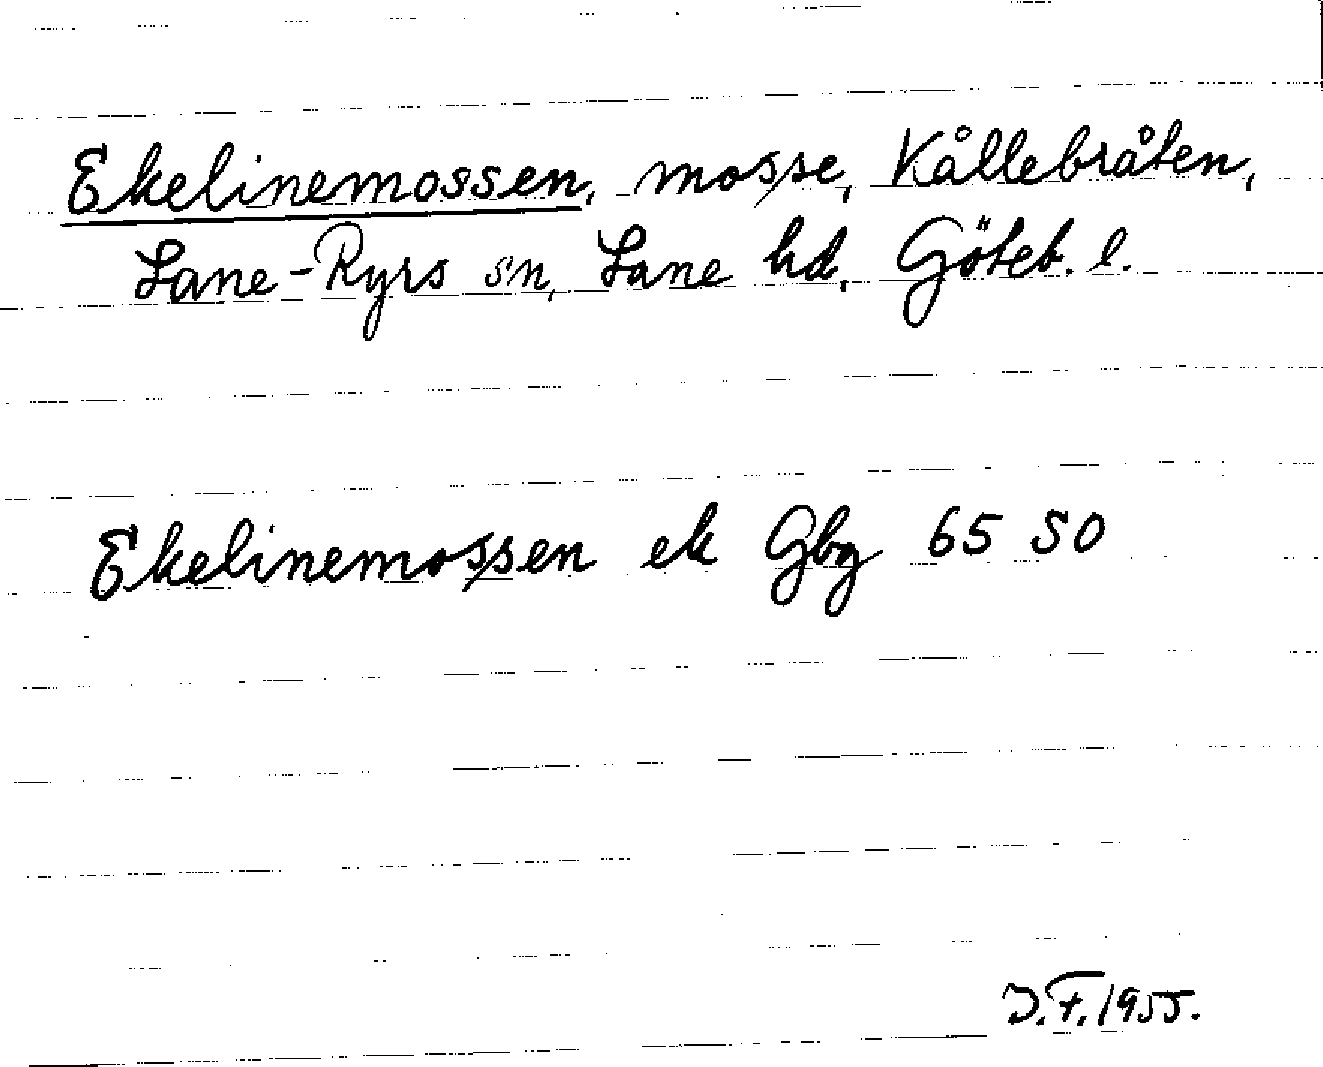 Ekelinemossen, mosse, Kållebråten,
Lane-Ryrs sn, Lane hd, Göteb. l.
Ekelinemossen ek Gbg 65 SO
J.F. 1955.